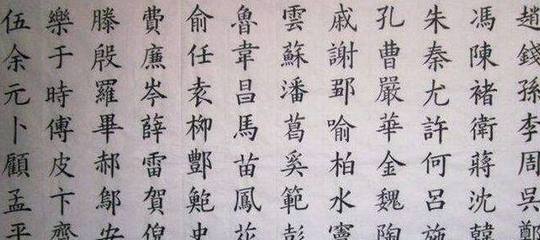 趙錢孫李周吳鄭
馮陳褚衛蔣沈韓
朱秦尤許何呂施
孔曹嚴華金魏陶
戚謝鄒喻柏水竇
雲蘇潘葛奚範彭
魯韋昌馬苗鳳花
俞任袁柳酆鮑史
費廉岑薛雷賀倪
滕殷羅畢郝鄔安
樂于時傅皮卞齊
伍余元卜顧孟平